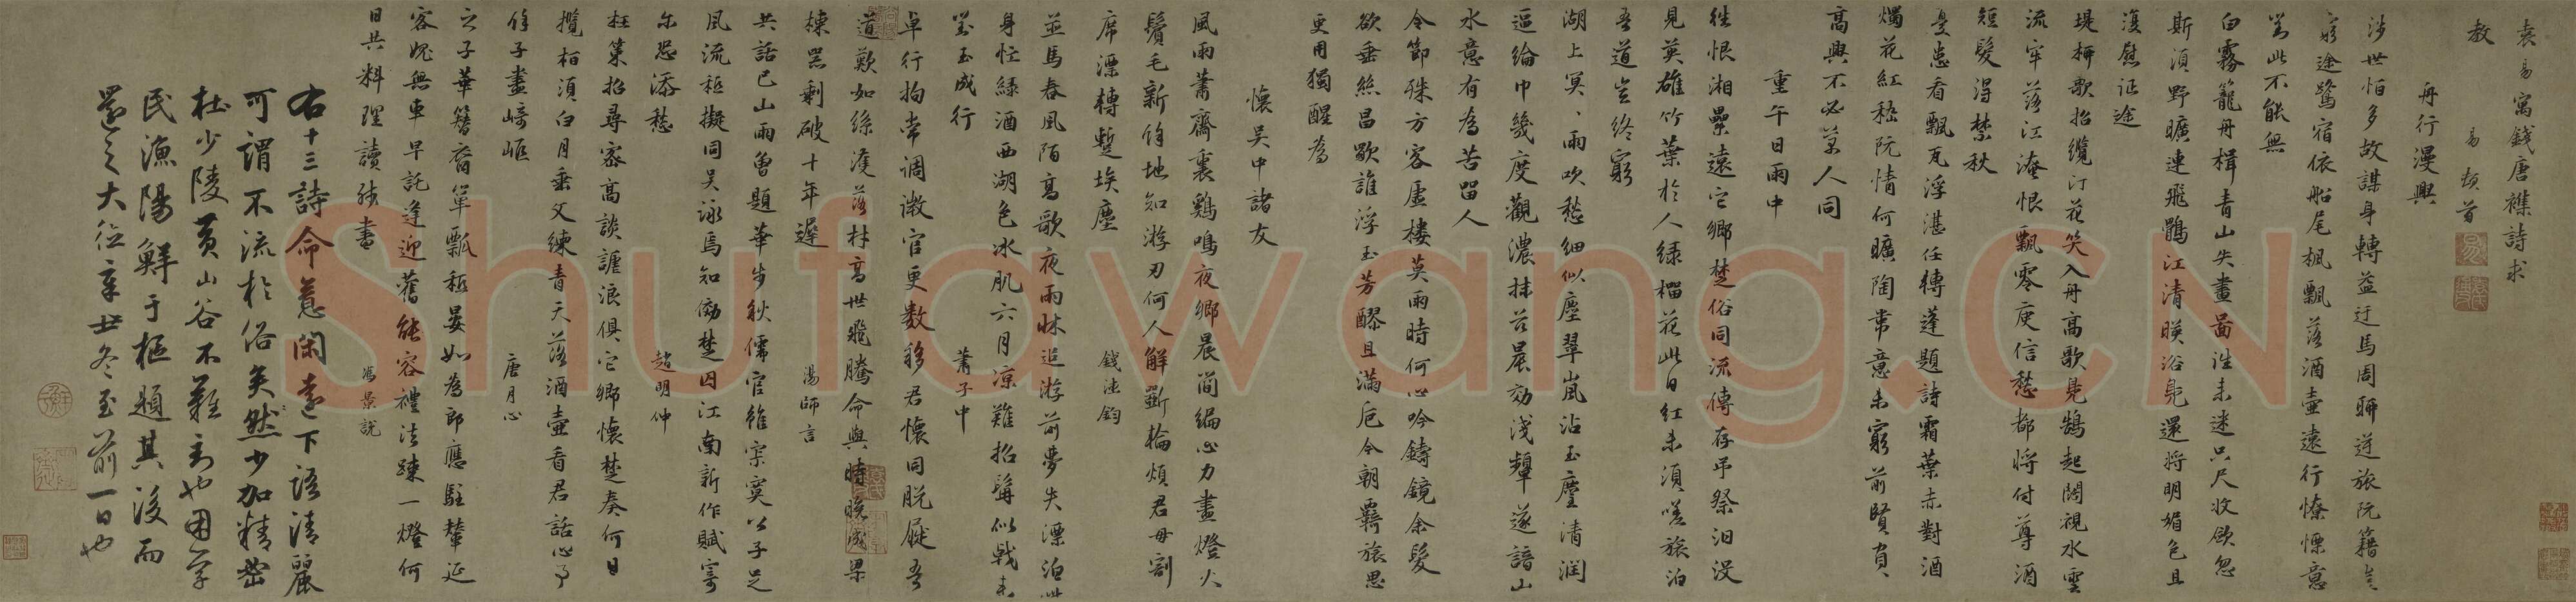 袁易寓錢唐襍詩求
教
易頓首
舟行漫興
涉世怕多故謀身轉益迂馬周聊逆旅阮籍豈
窮途鷺宿依船尾楓飄落酒壺遠行憭慄意
對此不能無
白霧籠舟楫青山失畫圖誰未迷只尺收欲忽
斯須野曠連飛鶻江清暎浴鳧還將明媚色且
復慰征途
堤柳歌招纜汀花笑入舟高歌見鵠起闊視水雲
流牢落江淹恨飄零庾信愁都將付尊酒
短髮得禁秋
憂患看飄瓦浮湛任轉蓬題詩霜葉赤對酒
燭花紅嵇阮情何曠陶韋意未窮前賢負
高興不必草人同
重午日雨中
往恨湘纍遠它鄉楚俗同流傳存弔祭汩沒
見英雄竹葉於人綠榴花此日紅未須嗟旅泊
吾道豈終窮
湖上冥、雨吹愁細似塵翠嵐沾玉麈清潤
逼綸巾幾度觀濃抹茲晨効淺顰遂諳山
水意有為苦留人
令節殊方客虛樓莫雨時何心吟鑄鏡余髮
欲垂絲昌歜誰浮玉芳醪且滿卮今朝羇旅思
更用獨醒為
懷吳中諸友
風雨蕭齋裏鷄鳴夜鄉晨簡編心力盡燈火
鬢毛新餘地知游刃何人解斲輪煩君毋割
席漂轉蹔埃塵
錢德鈞
並馬春風陌高歌夜雨牀追游前夢失漂泊此
身忙綠酒西湖色冰肌六月涼難招髯似戟未
對玉成行
蕭子中
卓行拘常調微官更數移君懷同脫屣吾
道歎如絲濩落材高世飛騰命與時晚成梁
棟器剩破十年遲
湯師言
共話巴山雨曾題華步秋儒官維寂寞公子足
風流秪擬同吳詠焉知効楚囚江南新作賦寄
尔恐添愁
趙明仲
枉策招尋密高談謔浪俱它鄉懷楚奏何日
攬栢須白月垂文練青天落酒壺看君話心事
餘子盡崎嶇
唐月心
之子華簪裔單瓢秪晏如為郎應駐輦延
客媿無車早託逢迎舊能容禮法踈一燈何
日共料理讀殘書
馮景說
右十三詩命意閑遠下語清麗
可謂不流於俗矣然少加精密
杜少陵黃山谷不難到也困學
民漁陽鮮于樞題其後而
還之大德辛丑冬至前一日也
Shufawang.CN